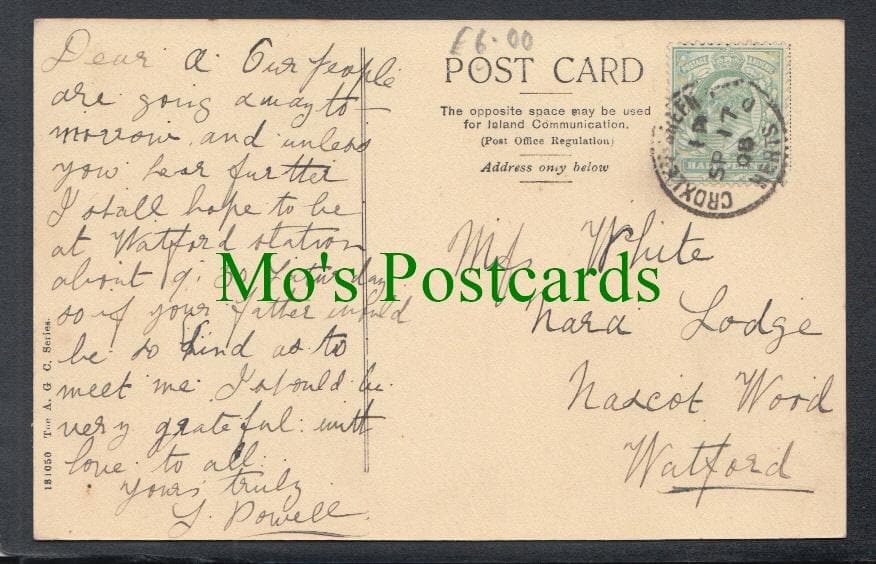 Dear A Our people
are going away to
morrow and unless
you hear further
I shall hope to be
at Watford station
about 9.30 Saturday
so if your father would
be so kind as to
meet me. I should be
very grateful. with
love to all.
yours truly
Powell
£6.00
POST CARD
The opposite space may be used
for Inland Communication.
(Post Office Regulation)
Address only below
POSTAGE REVENUE
HALFPENNY
CROXLEY GREEN
SP 17
08
HERTS
White
Nara Lodge
Nascot Wood
Watford
181050 The A. G. C. Series.
Mo's Postcards